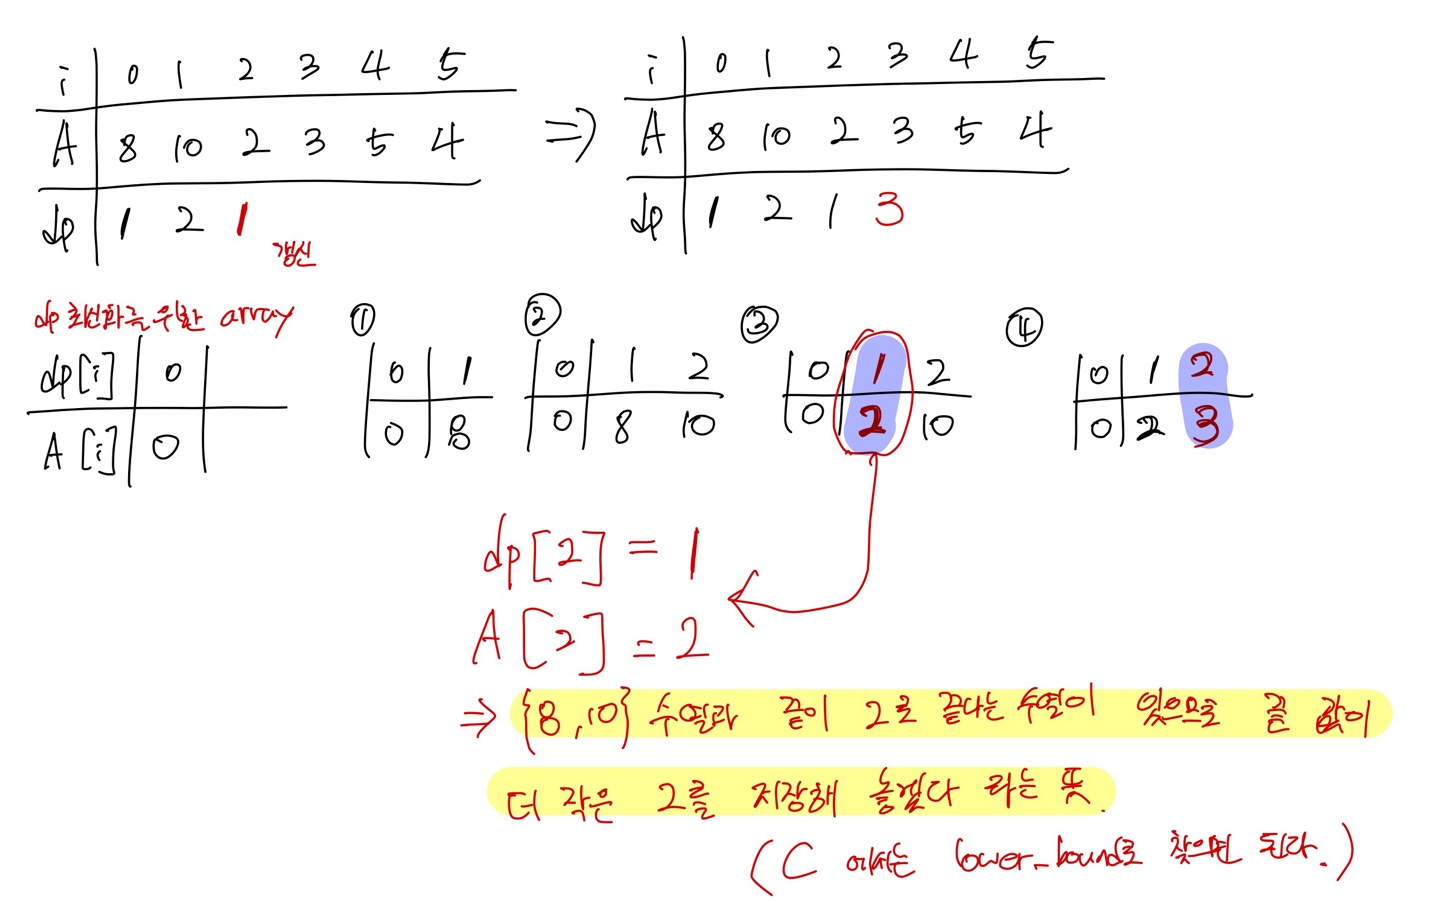 i 0 1 2 3 4 5
A 8 10 2 3 5 4
dp 1 2 1
갱신
⇒
i 0 1 2 3 4 5
A 8 10 2 3 5 4
dp 1 2 1 3
dp 최신화를 위한 array
dp[i] 0
A[i] 0
①
0 1
0 8
②
0 1 2
0 8 10
③
0 1 2
0 2 10
④
0 1 2
0 2 3
dp[2] = 1
A[2] = 2
⇒ {8,10} 수열과 끝이 2로 끝나는 수열이 있으므로 끝 값이
더 작은 2를 저장해 놓겠다 라는 뜻.
(C 에서는 lower_bound로 찾으면 된다.)